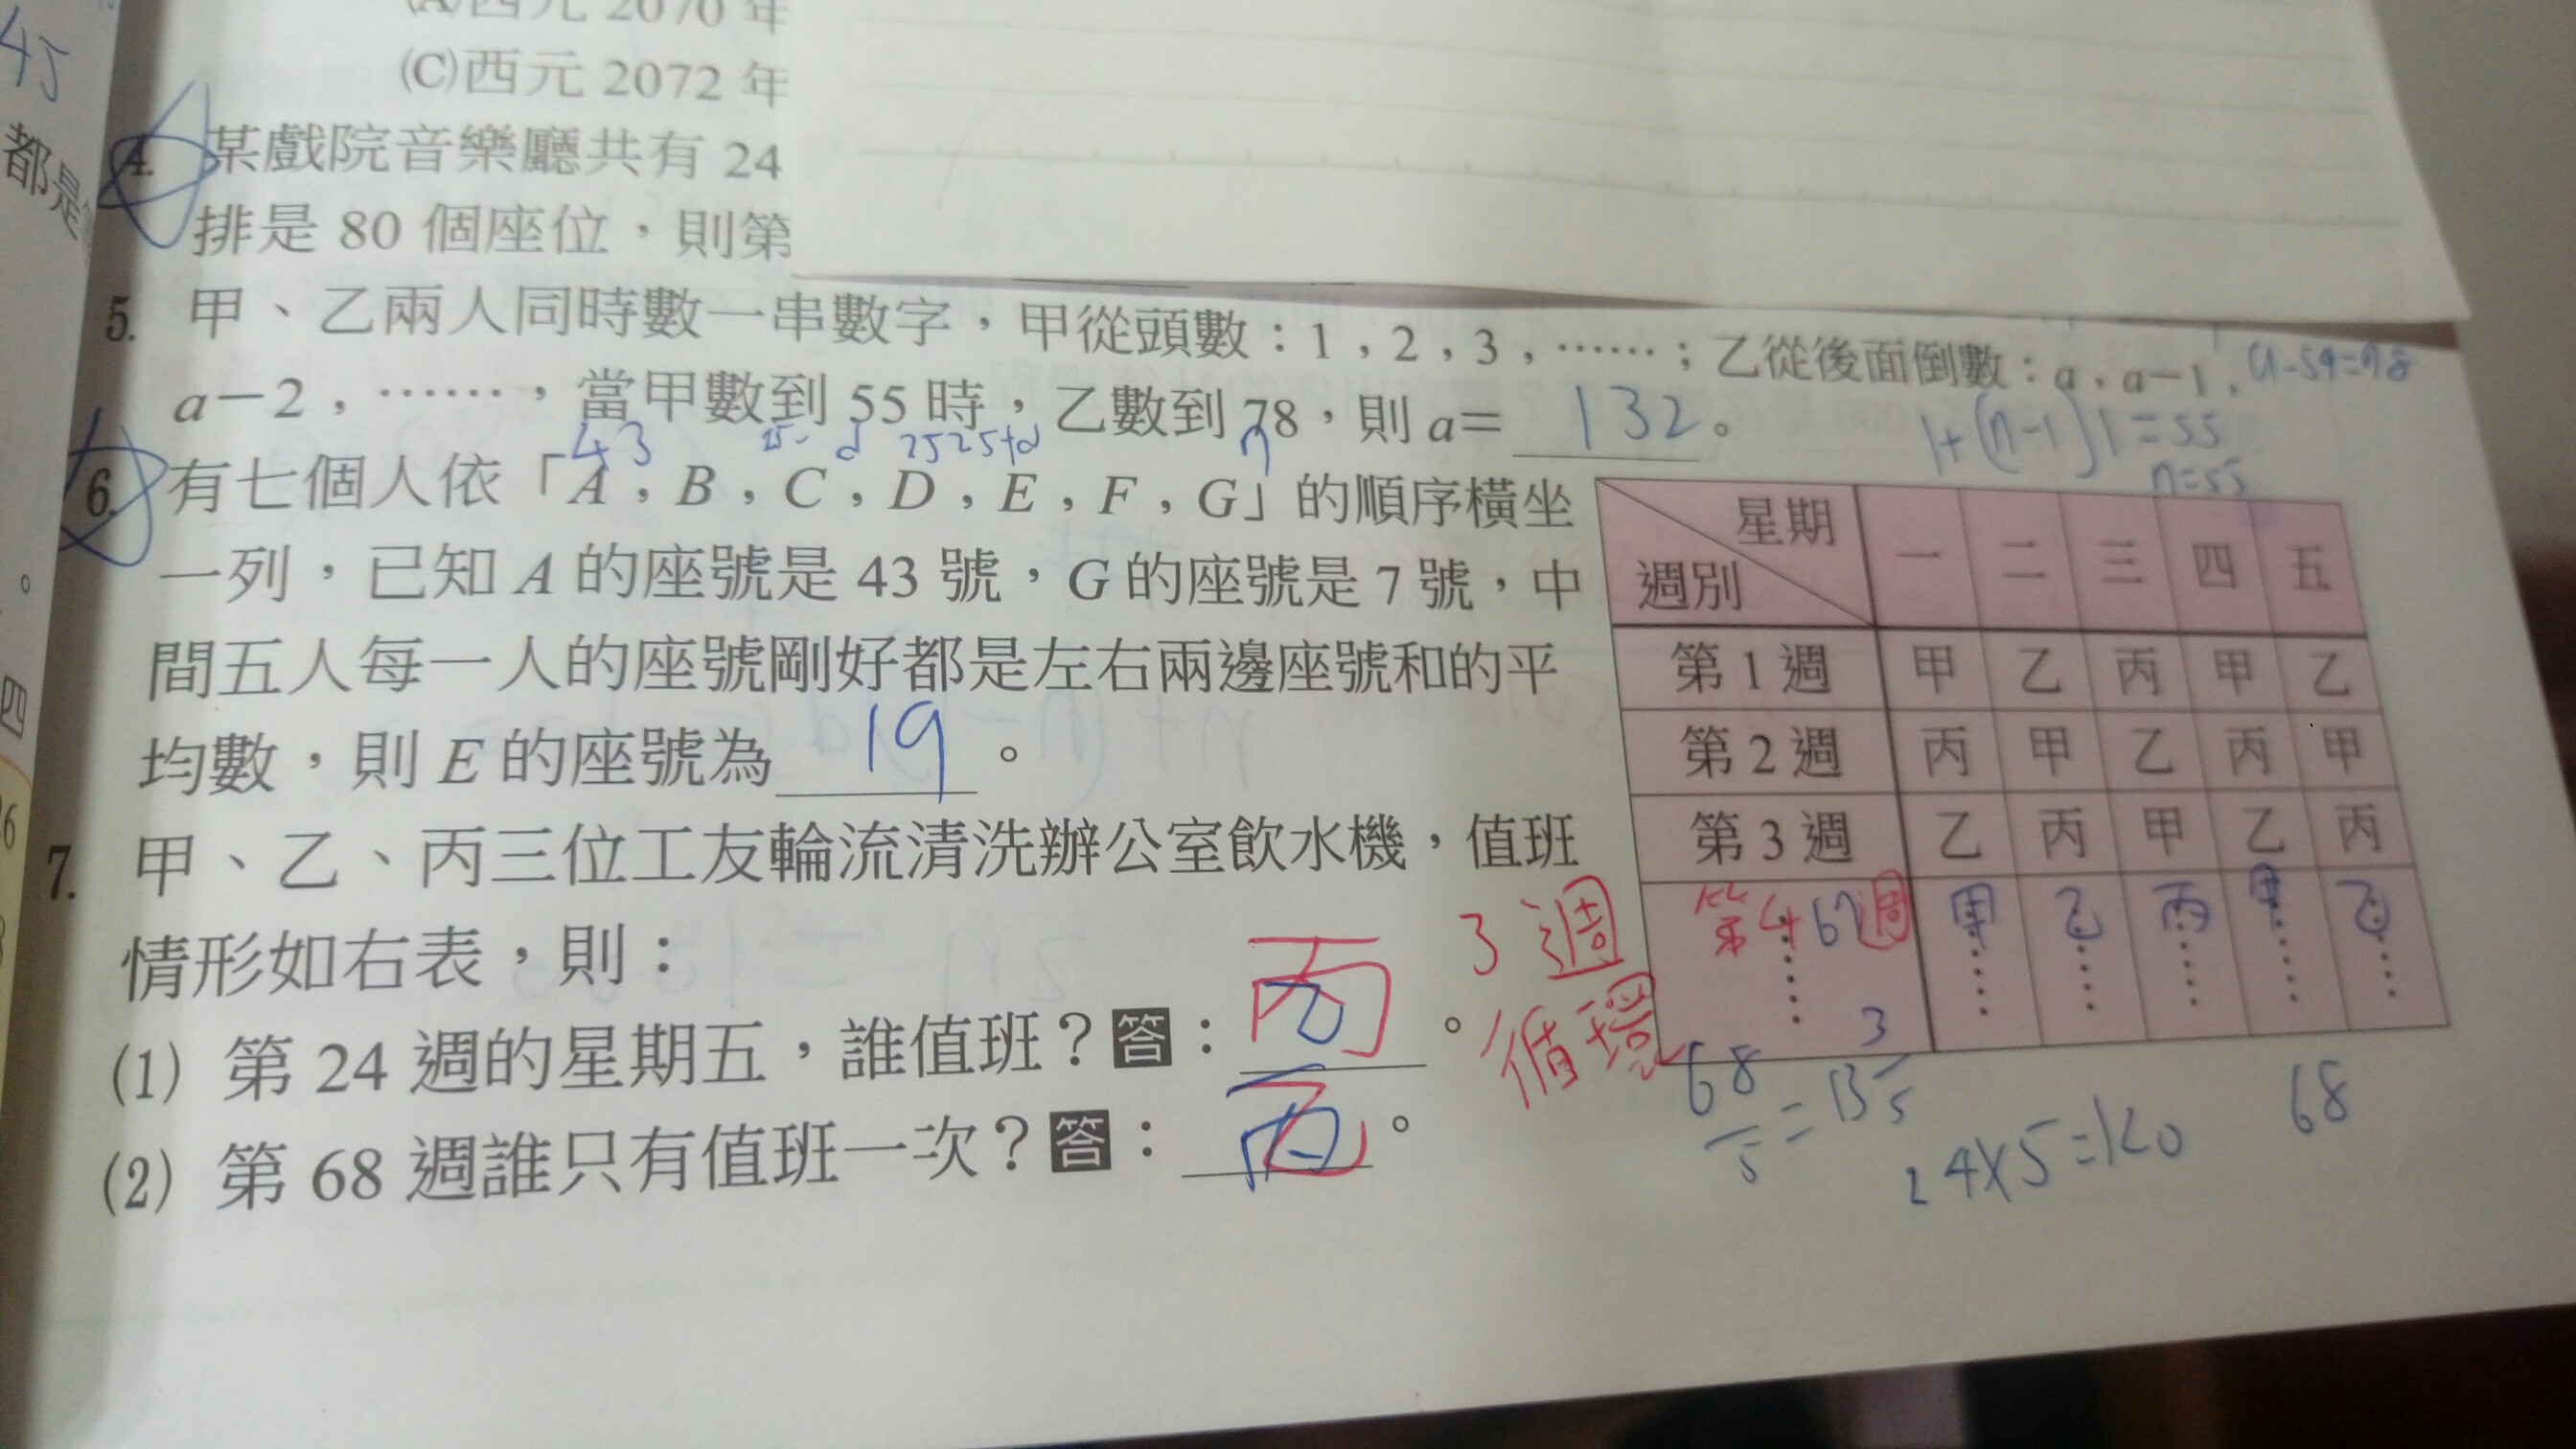 45
都是
四
(A)西元 2070 年
(C)西元 2072 年
4. 某戲院音樂廳共有 24
排是 80 個座位，則第
5. 甲、乙兩人同時數一串數字，甲從頭數：1，2，3，……；乙從後面倒數：a，a－1，
a－2，……，當甲數到 55 時，乙數到 78，則 a＝ 132 。
a-54=78
1+(n-1)1=55
n=55
43 25 d 25 25+d 7
6. 有七個人依「A，B，C，D，E，F，G」的順序橫坐
一列，已知 A 的座號是 43 號，G 的座號是 7 號，中
間五人每一人的座號剛好都是左右兩邊座號和的平
均數，則 E 的座號為 19 。
7. 甲、乙、丙三位工友輪流清洗辦公室飲水機，值班
情形如右表，則：
(1) 第 24 週的星期五，誰值班？答： 丙 。
(2) 第 68 週誰只有值班一次？答： 乙 。
3 週
循環
星期 週別 一 二 三 四 五
第 1 週 甲 乙 丙 甲 乙
第 2 週 丙 甲 乙 丙 甲
第 3 週 乙 丙 甲 乙 丙
第 4 67 週 甲 乙 丙 甲 乙
68/5=13 3/5
24×5=120
68